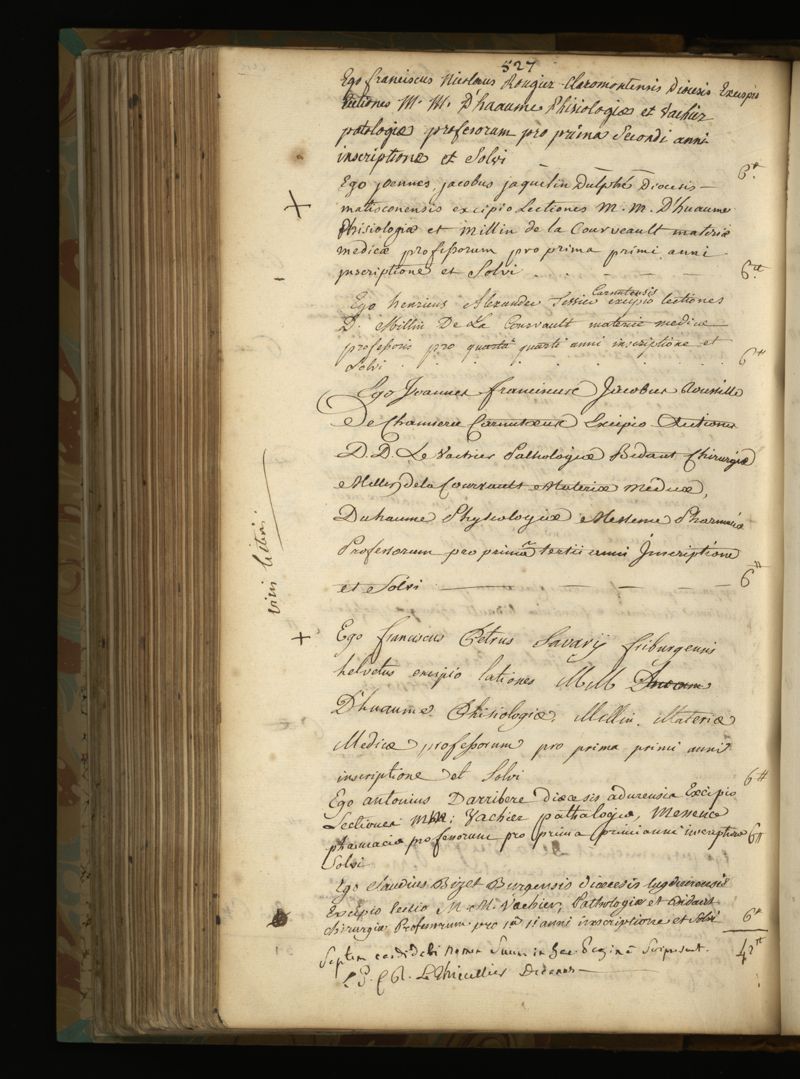 527
Ego franciscus Nicolaus Rougier Claromontensis Diocesis Excipio
lectiones M. M. D'huaume Phisiologiæ et Vachier
patologiæ professorum pro prima Secondi anni
inscriptione et Solvi
6#
Ego joannes jacobus jaquelin Dulphé Diocesis
matisconensis excipio Lectiones M. M. D'huaume
Phisiologiæ et Millin de la Courveault materiæ
medicæ professorum pro prima primi anni
inscriptione et Solvi
6#
Carnutensis
Ego henricus Alexander Tessier excipio lectiones
D. Millin De La Courvault materiæ medicæ
professoris pro quarta quarti anni inscriptione et
Solvi
6#
Ego Joannes franciscus Jacobus
De Chamseru Carnutæus Excipio Lectiones
D. D. Le Vachier Pathologiæ Bidaut Chirurgiæ
Millen de la Courvault Materiæ Medicæ,
Duhaume Physiologiæ Messeme Pharmaciæ
Professorum pro primâ tertii anni Inscriptione
et Solvi
6#
Ego franciscus Petrus Savary friburgensis
helvetus excipio lationes M M
D'huaume Phisiologiæ. Millin. Materiæ
Medicæ professorum pro prima primi anni
inscriptione et Solvi
6#
Ego antonius Darribere diœcesis adurensis Excipio
Lectiones MM: Vachier pathalogiæ, Messence
pharmaciæ professorum pro prima primi anni inscriptione
Solvi
6#
Ego Claudius Bizet Burgensis diœcesis lugdunensis
Excipio lectio M. M. Vachier, Pathologiæ et Bidaut
chirurgiæ Professorum pro 1â 1i anni inscriptione et Solvi
6#
Septem candidati nomen Suum in hac Paginâ Scripserunt.
42#
L. P. F. R. Le Thieullier Decanus